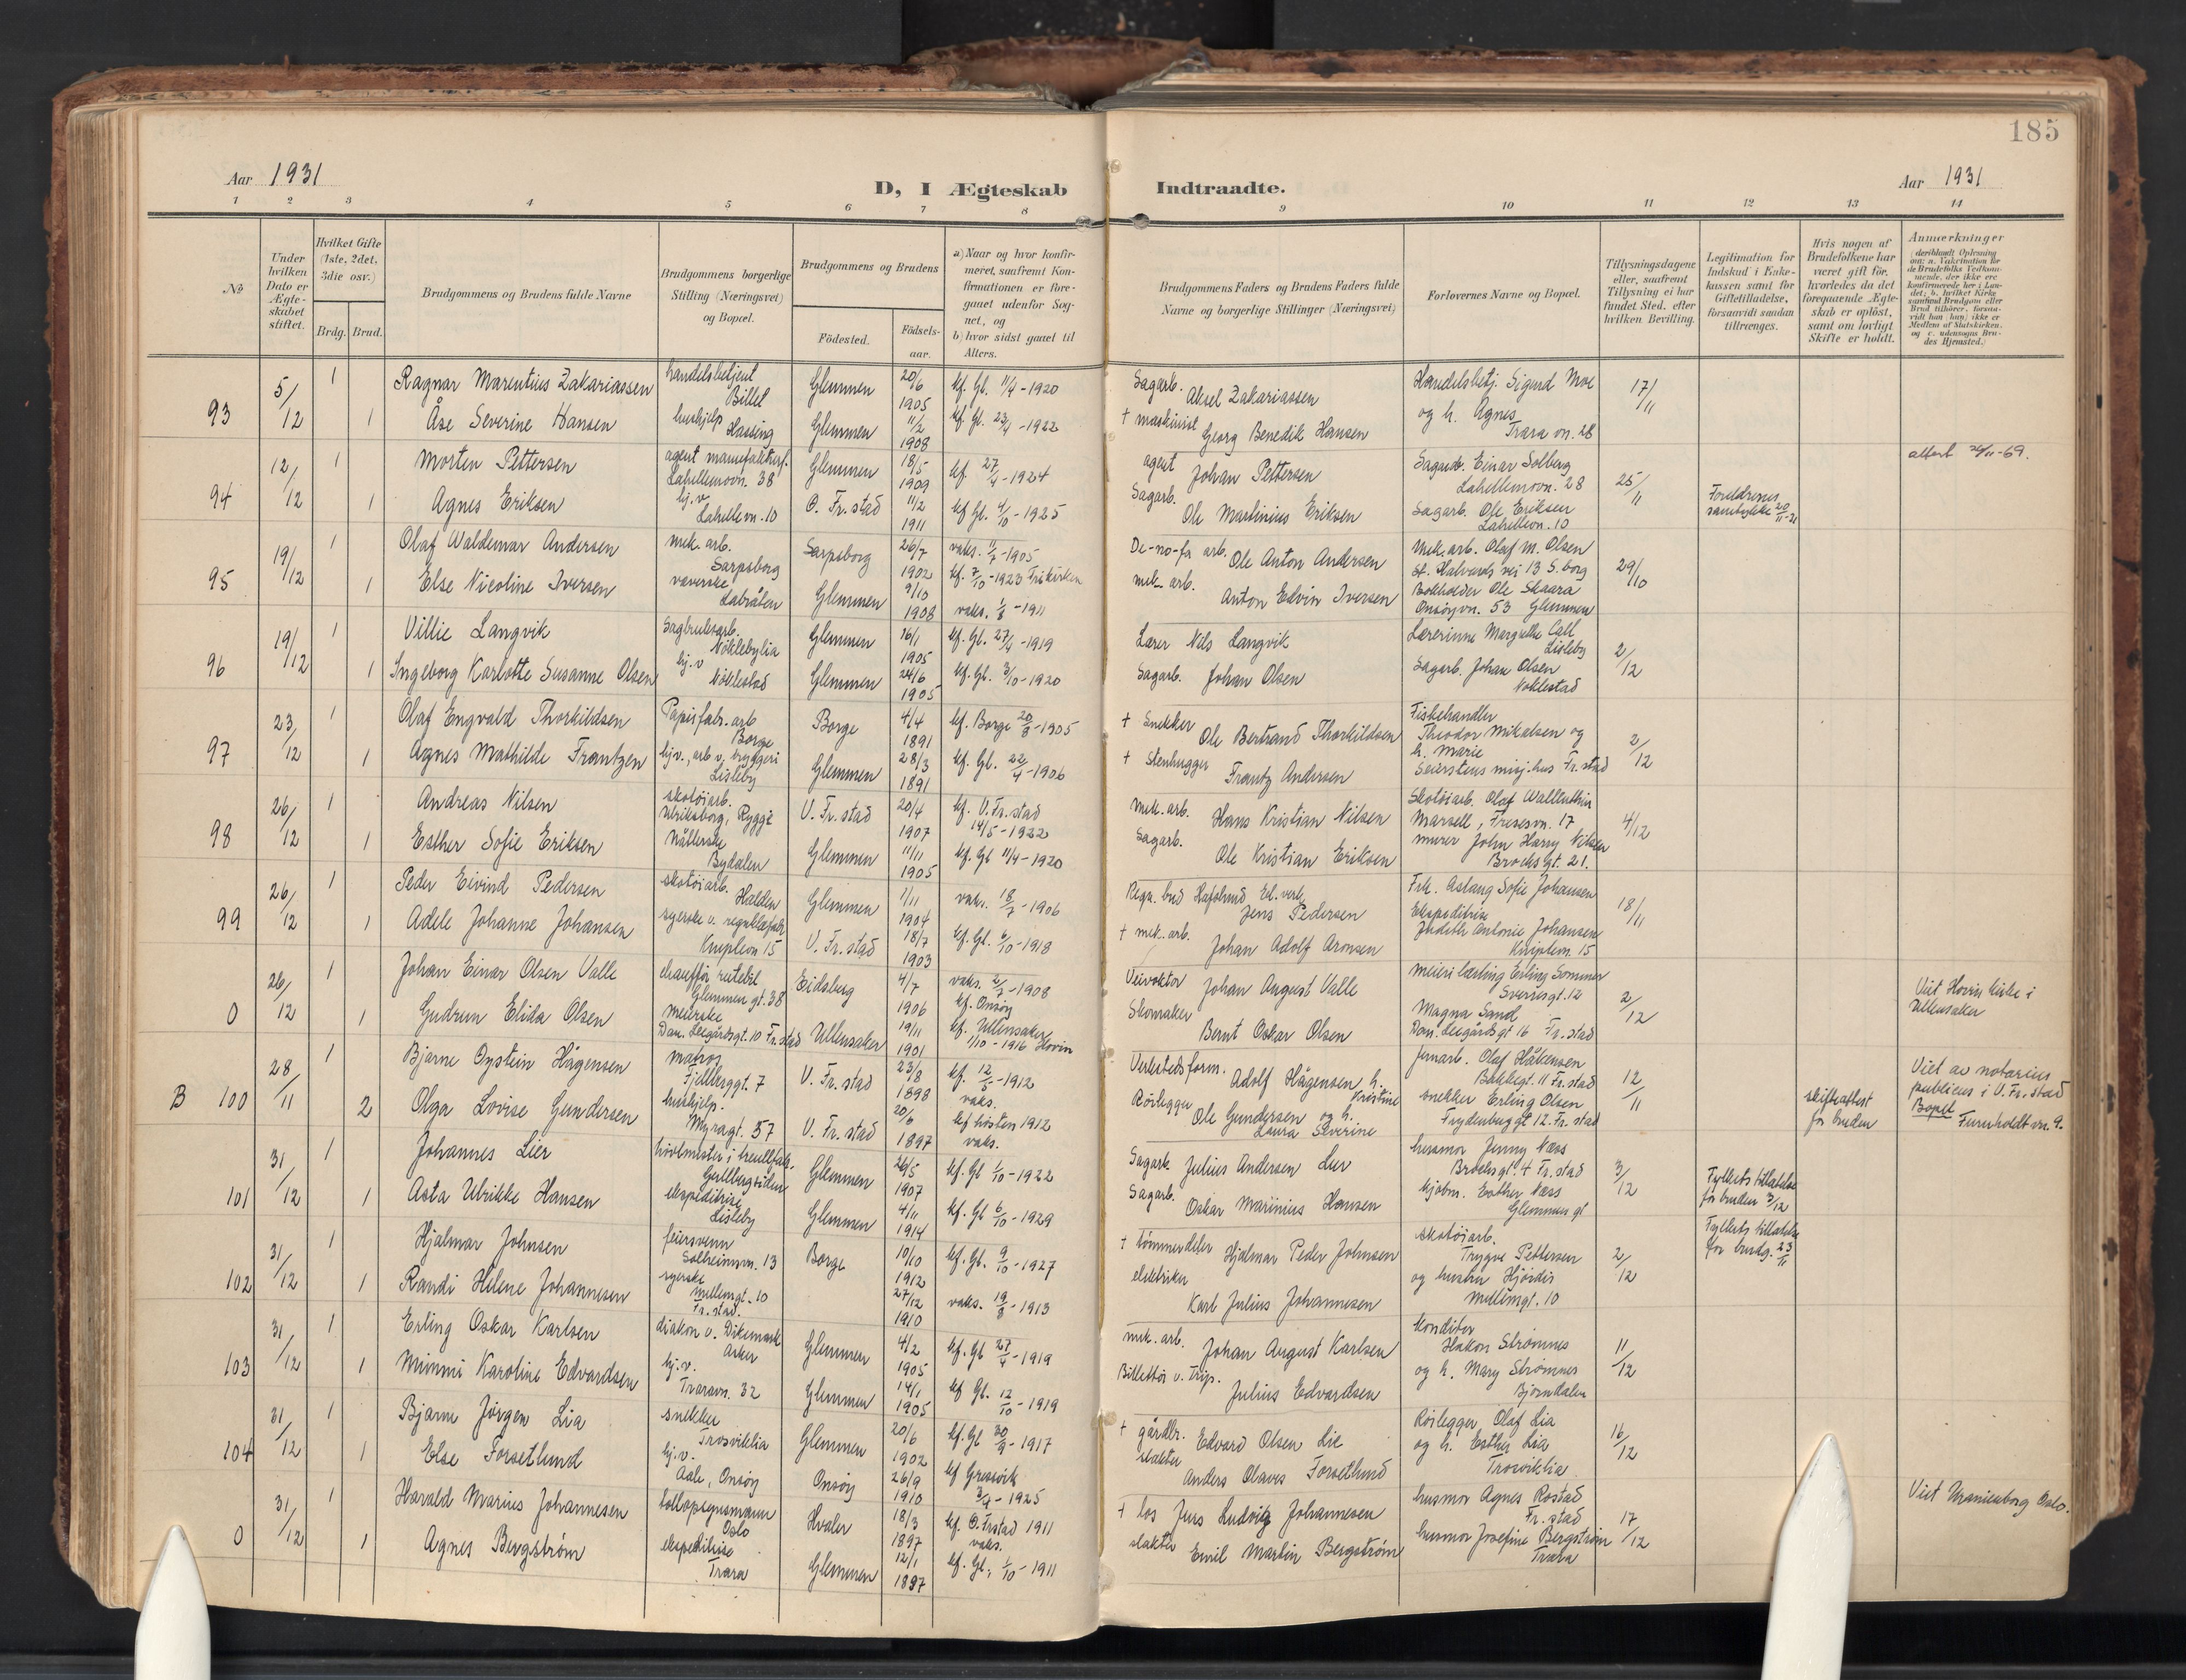 185
Aar 1931
D, I Ægteskab Indtraadte.
Aar 1931
1 2 3 4 5 6 7 8 9 10 11 12 13 14
№
Under hvilken Dato er Ægteskabet stiftet.
Hvilket Gifte (1ste, 2det, 3die osv.)
Brdg. Brud.
Brudgommens og Brudens fulde Navne
Brudgommens borgerlige Stilling (Næringsvei) og Bopæl.
Brudgommens og Brudens
Födested.
Födsels-aar.
a) Naar og hvor konfirmeret, saafremt Konfirmationen er foregaaet udenfor Sognet, og
b) hvor sidst gaaet til Alters.
Brudgommens Faders og Brudens Faders fulde Navne og borgerlige Stillinger (Næringsvei)
Forlovernes Navne og Bopæl.
Tillysningsdagene eller, saafremt Tillysning ei har fundet Sted, efter hvilken Bevilling.
Legitimation for Indskud i Enkekassen samt for Giftetilladelse, forsaavidt saadan tiltrænges.
Hvis nogen af Brudefolkene har været gift för, hvorledes da det foregaaende Ægteskab er oplöst, samt om lovligt Skifte er holdt.
Anmærkninger
93 5/12 1 Ragnar Marentius Zakariassen handelsbetjent Glemmen 20/6 1905 kf. Gl. 11/4-1920 Sagarb. Aksel Zakariassen Handelsbetj. Sigurd Moe 17/11
1 Åse Severine Hansen hushjelp Hassing Glemmen 11/2 1908 kf. Gl. 23/4-1922 † maskinist Georg Benedik Hansen og h. Agnes Trara vn. 28
94 12/12 1 Morten Pettersen agent Lahellemovn. 38 Glemmen 18/5 1909 kf. 27/4-1924 agent Johan Pettersen Sagarb. Einar Solberg Lahellemovn. 28 25/11 attest 26/11-69.
1 Agnes Eriksen hj. v. Lahellevn. 10 Ö. Fr.stad 11/2 1911 kf Gl. 4/10-1925 Sagarb. Ole Martinius Eriksen Sagarb. Ole Eriksen Lahellevn. 10 Foreldrenes samtykke
95 19/12 1 Olaf Waldemar Andersen mek. arb. Sarpsborg Sarpsborg 26/7 1902 vaks. 11/7-1905 kf. 7/10-1923 Frikirken De-no-fa arb. Ole Anton Andersen Mek. arb. Olaf M. Olsen St. Halvards vei 13 S.borg 29/10
1 Else Nicoline Iversen væverske Labråten Glemmen 9/10 1908 vaks. 1/8-1911 mek. arb. Anton Edvin Iversen Bokholder Ole Skaara Onsöyvn. 53 Glemmen
96 19/12 1 Villie Langvik Sagbruksarb. Nöklebylia Glemmen 16/1 1905 kf. Gl. 27/4-1919 Lærer Nils Langvik Lærerinne Lisleby 2/12
1 Ingeborg Karlotte Susanne Olsen hj. v Nöklestad Glemmen 24/6 1905 kf. Gl. 3/10-1920 Sagarb. Johan Olsen Sagarb. Johan Olsen Noklestad
97 23/12 1 Olaf Engvald Thorkildsen Papirfabr. arb Borge Borge 4/4 1891 kf. Borge 20/8-1905 † Snekker Ole Bertrand Thorkildsen Fiskehandler Theodor Mikalsen og h. Marie 2/12
1 Agnes Mathilde Frantzen hj. v., arb v. bryggeri Lisleby Glemmen 28/3 1891 kf. Gl. 22/4-1906 † Stenhugger Frantz Andersen Seierstens misj. hus Fr. stad
98 26/12 1 Andreas Nilsen skotöiarb. Ulriksborg, Rygge V. Fr. stad 20/4 1907 kf. V. Fr. stad 14/5-1922 mek. arb. Hans Kristian Nilsen Skotöiarb. Olaf Wallenthin Marsell, Fresesvn. 17 4/12
1 Esther Sofie Eriksen Nåtlerske Bydalen Glemmen 11/11 1905 kf. Gl 11/4-1920 Sagarb. Ole Kristian Eriksen murer John Harry Nilsen Brochsgt. 21.
99 26/12 1 Peder Eivind Pedersen skotöiarb. Halden Glemmen 1/11 1904 vaks. 18/7-1906 Regn. bud Hafslund El. verk Jens Pedersen Frk. Aslaug Sofie Johansen 18/11
1 Adele Johanne Johansen syerske Kniplevn 15 V. Fr. stad 18/7 1903 kf. Gl. 6/10-1918 † mek. arb. Johan Adolf Aronsen Ekspeditrise Judith Antonie Johansen Kniplevn. 15
0 26/12 1 Johan Einar Olsen Valle chauffør rutebil Glemmen gt. 38 Eidsberg 4/7 1906 vaks. 2/7-1908 kf. Onsöy Veivokter Johan August Valle meieri lærling Erling Sommer Sverresgt. 12 2/12 Viet Hovin kirke i Ullensaker
1 Gudrun Elida Olsen meierske Dam. Leegårdsgt. 10 Fr. stad Ullensaker 19/11 1901 kf. Ullensaker 1/10-1916 Hovin Skomaker Bernt Oskar Olsen Magna Sand Dam. Leegårdsgt 16 Fr. stad
B 100 28/11 1 Bjarne Oystein Hågensen matros Fjellberggt. 7 V. Fr. stad 23/8 1898 kf. 12/5-1912 vaks. Verkstedsform. Adolf Hågensen h. Kristine jernarb. Olaf Håkensen Bakkegt. 11 Fr. stad 12/11 Viet av notarius publicus i V. Fr. stad
2 Olga Lovise Gundersen hushjelp. Myragt. 57 V. Fr. stad 20/6 1897 kf hösten 1912 vaks. Rörlegger Ole Gundersen og h. Laura Severine snekker Erling Olsen Frydenberg gt 12. Fr. stad skifteattest for bruden Bopel Furuholdt vn. 9.
101 31/12 1 Johannes Lier hövlmester i Glemmen 26/5 1907 kf. Gl 1/10-1922 Sagarb. Julius Andersen Lier husmor Jenny Næss Brochsgt. 4 Fr. stad 3/12
1 Asta Ulrikke Hansen ekspeditrise Lisleby Glemmen 4/11 1914 kf. Gl 6/10-1929 Sagarb. Oskar Marinius Hansen kjöbm. Esther Næss Glemmen gt Fylkets tillatelse for bruden 3/12
102 31/12 1 Hjalmar Johnsen feiersvenn Solheimsvn. 13 Borge 10/10 1912 kf. Gl. 9/10-1927 † tömmerdeler Hjalmar Peder Johnsen skotöiarb. Trygve Pettersen 2/12 Fylkets tillatelse for brudg. 23/11
1 Randi Helene Johannesen syerske Mellemgt. 10 Fr. stad. 27/12 1910 vaks. 19/8-1913 elektriker Karl Julius Johannesen og hustru Hjördis Mellemgt. 10
103 31/12 1 Erling Oskar Karlsen diakon v. Dikemark Asker Glemmen 4/2 1905 kf. Gl 27/4-1919 mek. arb. Johan August Karlsen konditor Håkon Strömnes 11/12
1 Minmi Karoline Edvardsen hj. v. Traravn. 32 Glemmen 14/1 1905 kf Gl. 12/10-1919 Billettör v. Trip. Julius Edvardsen og h. Mary Strömnes Björndalen
104 31/12 1 Bjarne Jörgen Lia snekker Trosviklia Glemmen 20/6 1902 kf. Gl 30/9-1917 † gårdbr. Edvard Olsen Lie Rörlegger Olaf Lia 16/12
1 Else Forsetlund hj. v. Aale, Onsöy Onsöy 26/9 1910 kf Gressvik 3/4-1925 slakter Anders Olaves Forsetlund og h. Esther Lia Trosviklia
0 31/12 1 Harald Marius Johannesen tollopsynsmann Oslo Hvaler 18/3 1897 kf. Ö. Frstad 1911 vaks. † los Jens Ludvig Johannesen husmor Agnes Rostad Fr. stad 17/12 Viet Uranienborg Oslo.
1 Agnes Bergström ekspeditrise Trara Glemmen 12/1 1897 kf. Gl. 1/10-1911 slakter Emil Martin Bergström husmor Josefine Bergström Trara